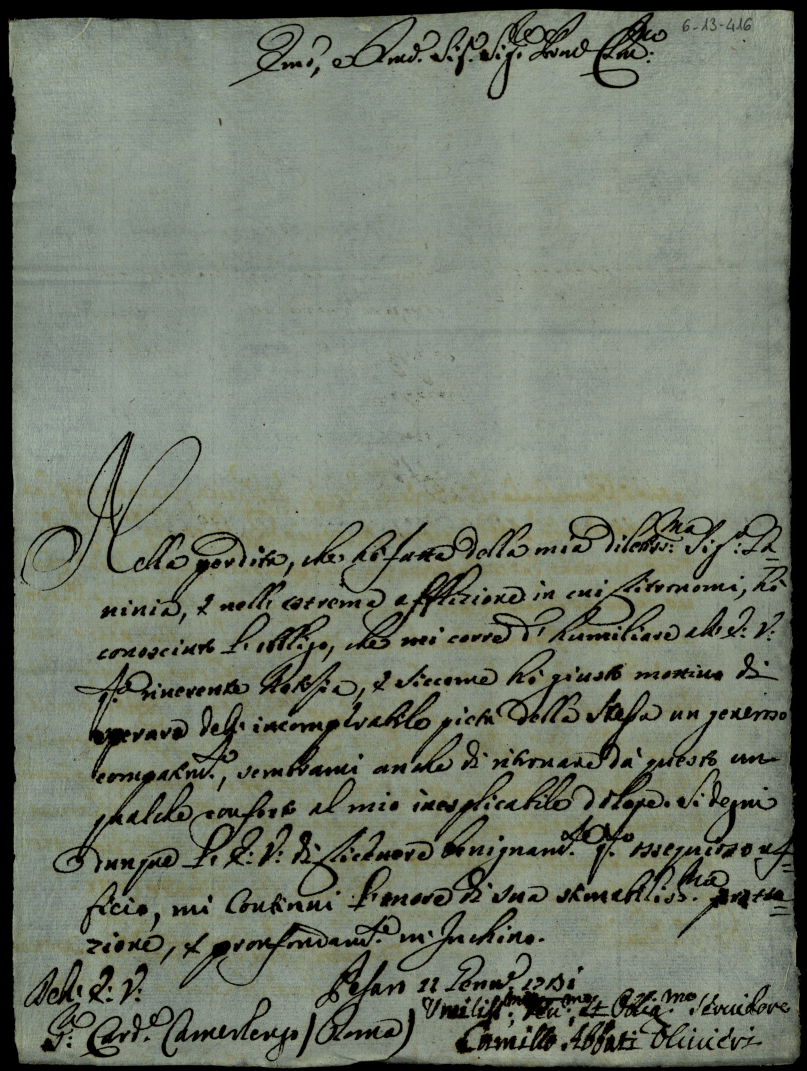 6-13-416
Emo, e Rmo. Sig. Sig.re Pne Colmo.
Nella perdita, che hò fatta della mia dilettis.ma Sig.ra La=
vinia, e nell' estrema afflizione in cui ritrovomi, hò
conosciuto l'obbligo, che mi corre d' humiliare all' E: V:
riverente notizia, e siccome hò giusto mottivo di
sperare dell' incomparabile pietà della Stessa un generoso
compatim.to, sembrami anche di ritrovare da questo un
qualche conforto al mio inesplicabile dolore. Si degni
dunque l' E: V: di ricevere benignam.te q.to ossequioso uf=
ficio, mi continui l'onore di sua stimabiliss.ma protte=
zione, e profondam.te m' Inchino.
Dell' E: V: Pesaro 11 Genn.o
Umiliss.mo, Dev.mo, et Obblig.mo Servidore
S.r Card.e Camerlengo / Roma) Camillo Abbati Olivieri